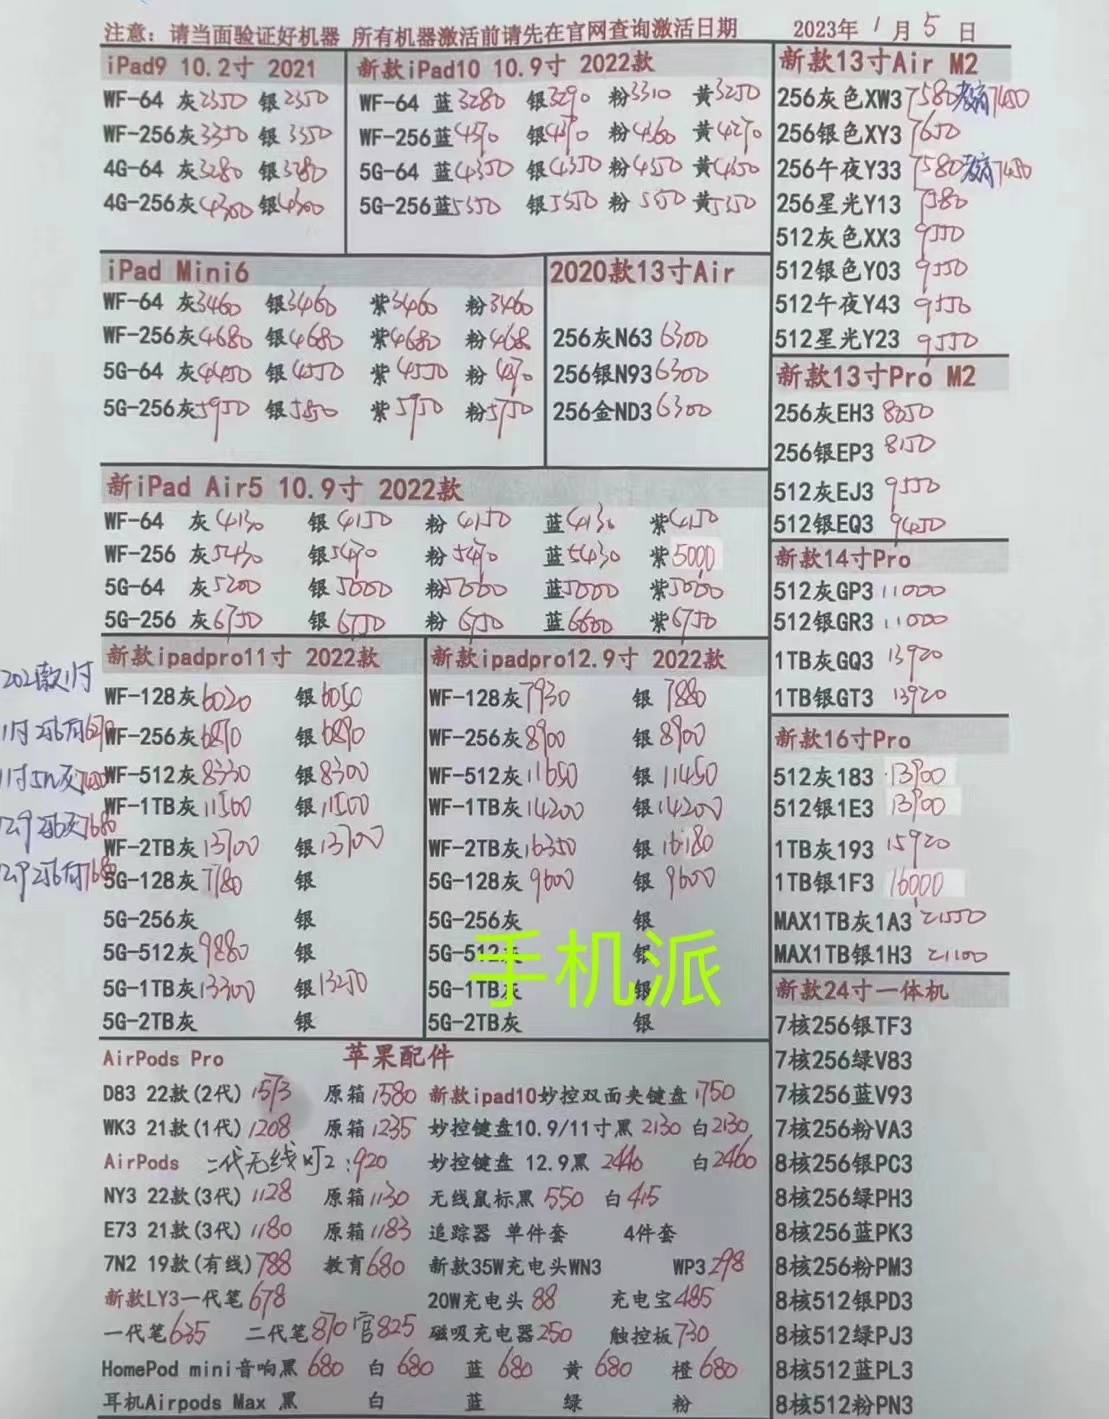 注意：请当面验证好机器 所有机器激活前请先在官网查询激活日期
2023年 1 月 5 日
iPad9 10.2寸 2021
WF-64 灰2350 银2350
WF-256灰3350 银3350
4G-64 灰3280 银3280
4G-256灰4300 银4300
新款iPad10 10.9寸 2022款
WF-64 蓝3280 银3290 粉3310 黄3250
WF-256蓝4370 银4370 粉4360 黄4270
5G-64 蓝4350 银4350 粉4550 黄4650
5G-256蓝5350 银5550 粉 5550 黄5350
新款13寸Air M2
256灰色XW3 7580 7450
256银色XY3 7650
256午夜Y33 7580 7450
256星光Y13 7380
512灰色XX3 9550
512银色Y03 9550
512午夜Y43 9550
512星光Y23 9550
iPad Mini6
WF-64 灰3460 银3460 紫3460 粉3460
WF-256灰4680 银4680 紫4680 粉468
5G-64 灰4450 银4550 紫4550 粉
5G-256灰5950 银5850 紫5950 粉5750
2020款13寸Air
256灰N63 6300
256银N93 6300
256金ND3 6300
新款13寸Pro M2
256灰EH3 8050
256银EP3 8150
512灰EJ3 9550
512银EQ3 9450
新iPad Air5 10.9寸 2022款
WF-64 灰4130 银4150 粉4150 蓝4130 紫4150
WF-256 灰5430 银5490 粉5490 蓝5430 紫5000
5G-64 灰5200 银5000 粉5000 蓝5000 紫5000
5G-256 灰6750 银6750 粉6750 蓝6600 紫6750
新款14寸Pro
512灰GP3 11000
512银GR3 11000
1TB灰GQ3 13920
1TB银GT3 13920
新款ipadpro11寸 2022款
WF-128灰6020 银6050
WF-256灰6890 银6890
WF-512灰8330 银8300
WF-1TB灰11500 银11500
WF-2TB灰13700 银13700
5G-128灰7780 银
5G-256灰 银
5G-512灰9880 银
5G-1TB灰13300 银13250
5G-2TB灰 银
新款ipadpro12.9寸 2022款
WF-128灰7930 银7880
WF-256灰8900 银8900
WF-512灰11650 银11450
WF-1TB灰14200 银14200
WF-2TB灰16350 银16180
5G-128灰9600 银9600
5G-256灰 银
5G-512灰 银
5G-1TB灰 银
5G-2TB灰 银
手机派
新款16寸Pro
512灰183 13900
512银1E3 13900
1TB灰193 15920
1TB银1F3 16000
MAX1TB灰1A3 21550
MAX1TB银1H3 21100
新款24寸一体机
7核256银TF3
7核256绿V83
7核256蓝V93
7核256粉VA3
8核256银PC3
8核256绿PH3
8核256蓝PK3
8核256粉PM3
8核512银PD3
8核512绿PJ3
8核512蓝PL3
8核512粉PN3
AirPods Pro 苹果配件
D83 22款(2代) 1573 原箱1580 新款ipad10妙控双面夹键盘1750
WK3 21款(1代) 1208 原箱1235 妙控键盘10.9/11寸黑 2130 白2130
AirPods 二代无线 920 妙控键盘 12.9黑 2440 白2460
NY3 22款(3代) 1128 原箱1130 无线鼠标黑 550 白 415
E73 21款(3代) 1180 原箱1183 追踪器 单件套 4件套
7N2 19款(有线)788 教育680 新款35W充电头WN3 WP3 298
新款LY3一代笔678 20W充电头 88 充电宝485
一代笔635 二代笔870 官825 磁吸充电器250 触控板730
HomePod mini音响黑 680 白 680 蓝 680 黄 680 橙 680
耳机Airpods Max 黑 白 蓝 绿 粉